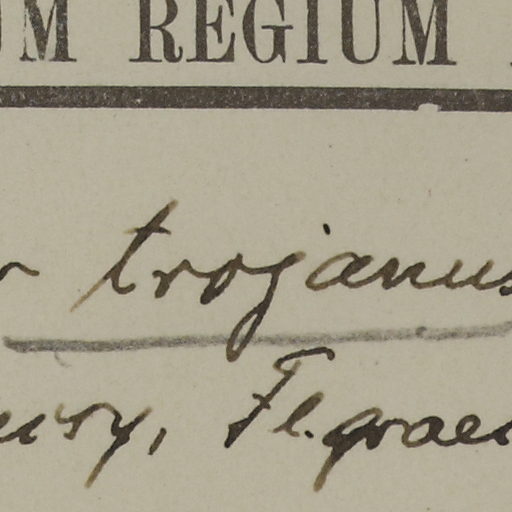 UM REGIUM
r trojanus
Fl. graec